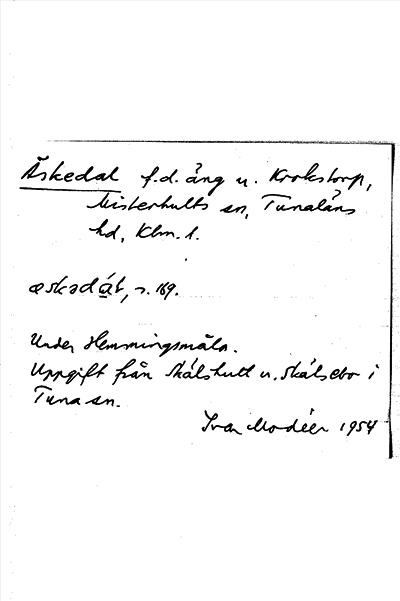 Äskedal f.d. äng u. Krokstorp,
Misterhults sn, Tunaläns
hd, Klm. l.
æskədát, s. 169.
Under Hemmingsmåla.
Uppgift från Skälshult u. Skälsebo i
Tuna sn.
Ivar Modéer 1954